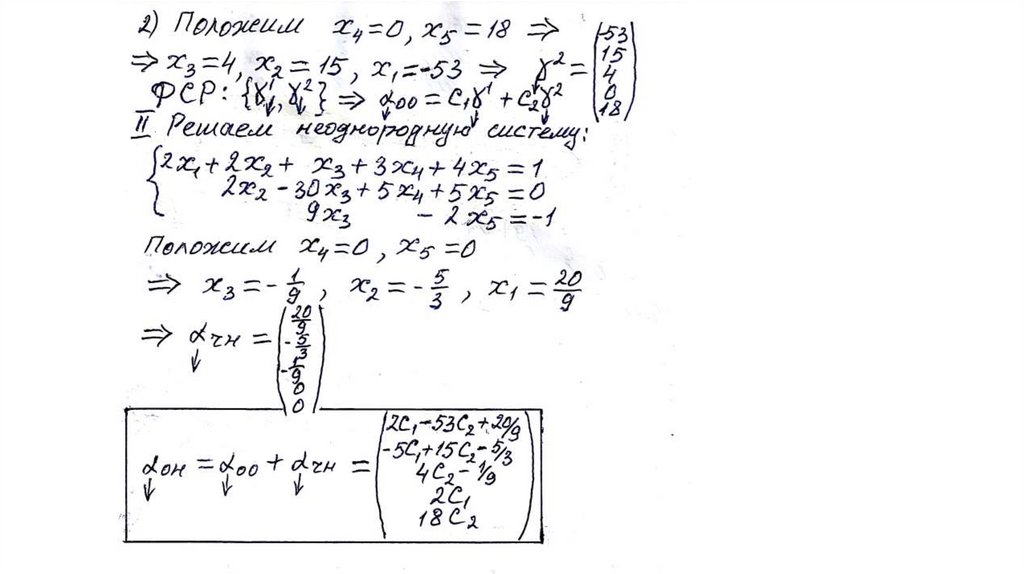 2) Положим x₄=0, x₅=18 ⇒
⇒ x₃=4, x₂=15, x₁=-53 ⇒ γ² = (-53 15 4 0 18)
ФСР: {γ¹, γ²} ⇒ α₀₀ = C₁γ¹ + C₂γ²
II Решаем неоднородную систему:
2x₁+2x₂+ x₃+3x₄+4x₅=1
2x₂-30x₃+5x₄+5x₅=0
9x₃ -2x₅=-1
Положим x₄=0, x₅=0
⇒ x₃=-1/9, x₂=-5/3, x₁=20/9
⇒ αчн = (20/9 -5/3 -1/9 0 0)
αон = αоо + αчн = (2C₁-53C₂+20/9
-5C₁+15C₂-5/3
4C₂-1/9
2C₁
18C₂)